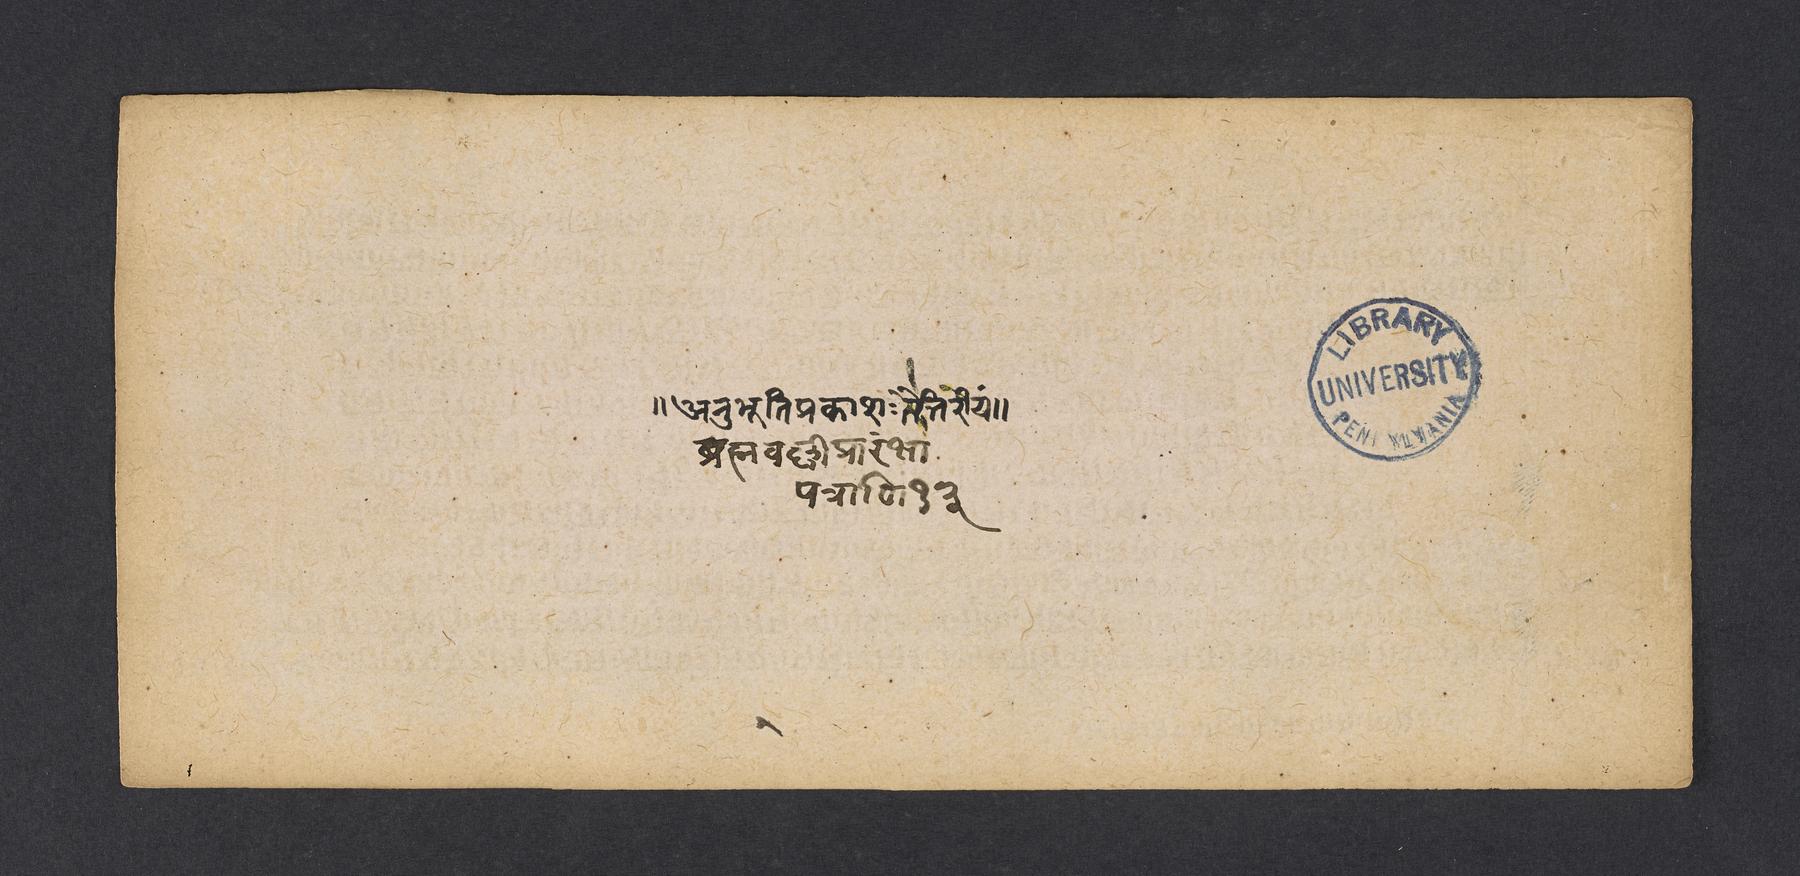 ॥अनुभूतिप्रकाशःतैत्तिरीयं॥
ब्रह्मवल्लीप्रारंभः
पत्राणि१३
LIBRARY
UNIVERSITY